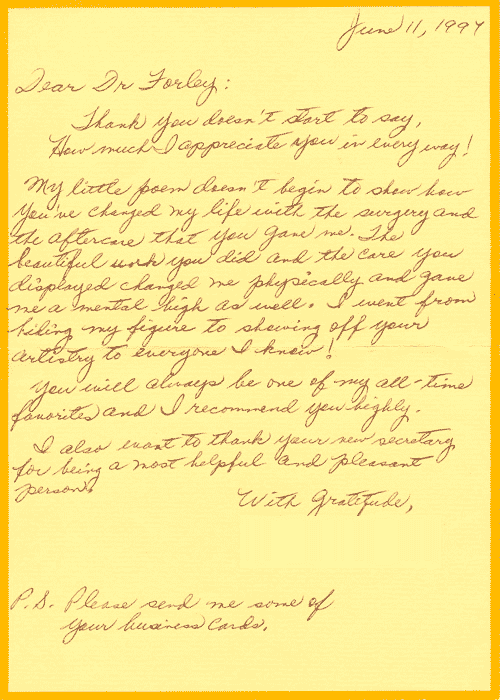 June 11, 1997
Dear Dr Forley:
Thank you doesn't start to say,
How much I appreciate you in every way!
My little poem doesn't begin to show how
you've changed my life with the surgery and
the aftercare that you gave me. The
beautiful work you did and the care you
displayed changed me physically and gave
me a mental high as well. I went from
hiding my figure to showing off your
artistry to everyone I know!
You will always be one of my all-time
favorites and I recommend you highly.
I also want to thank your new secretary
for being a most helpful and pleasant
person.
With Gratitude,
P.S. Please send me some of
your business cards.